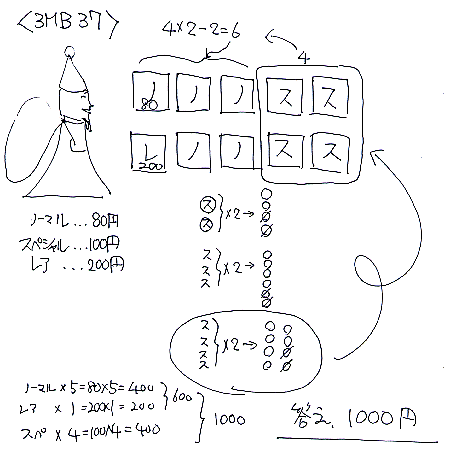 <3MB37>
4×2-2=6
4
ノ ノ ノ ス ス
80
レ ノ ノ ス ス
200
ス
ス
×2→
ノーマル…80円
スペシャル…100円
レア…200円
ス
ス
ス
×2→
ス
ス
ス
ス
×2→
ノーマル×5=80×5=400
レア×1=200×1=200
600
スペ×4=100×4=400
1000
答え、1000円